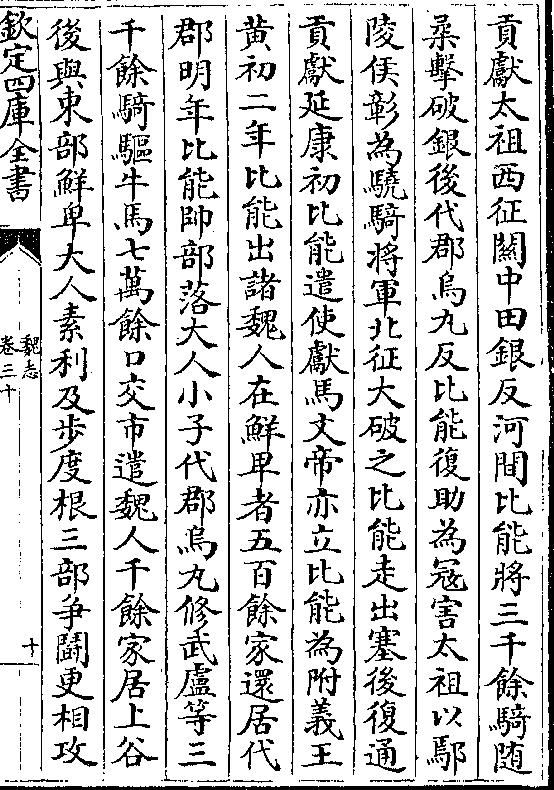 貢獻太祖西征關中田銀反河間比能將三千餘騎隨
柔擊破銀後代郡烏丸反比能復助為寇害太祖以鄢
陵侯彰為驍騎將軍北征大破之比能走出塞後復通
貢獻延康初比能遣使獻馬文帝亦立比能為附義王
黄初二年比能出諸魏人在鮮卑者五百餘家還居代
郡明年比能帥部落大人小子代郡烏丸修武盧等三
千餘騎驅牛馬七萬餘口交市遣魏人千餘家居上谷
後與東部鮮卑大人素利及步度根三部爭鬭更相攻
欽定四庫全書
魏志
卷三十
十